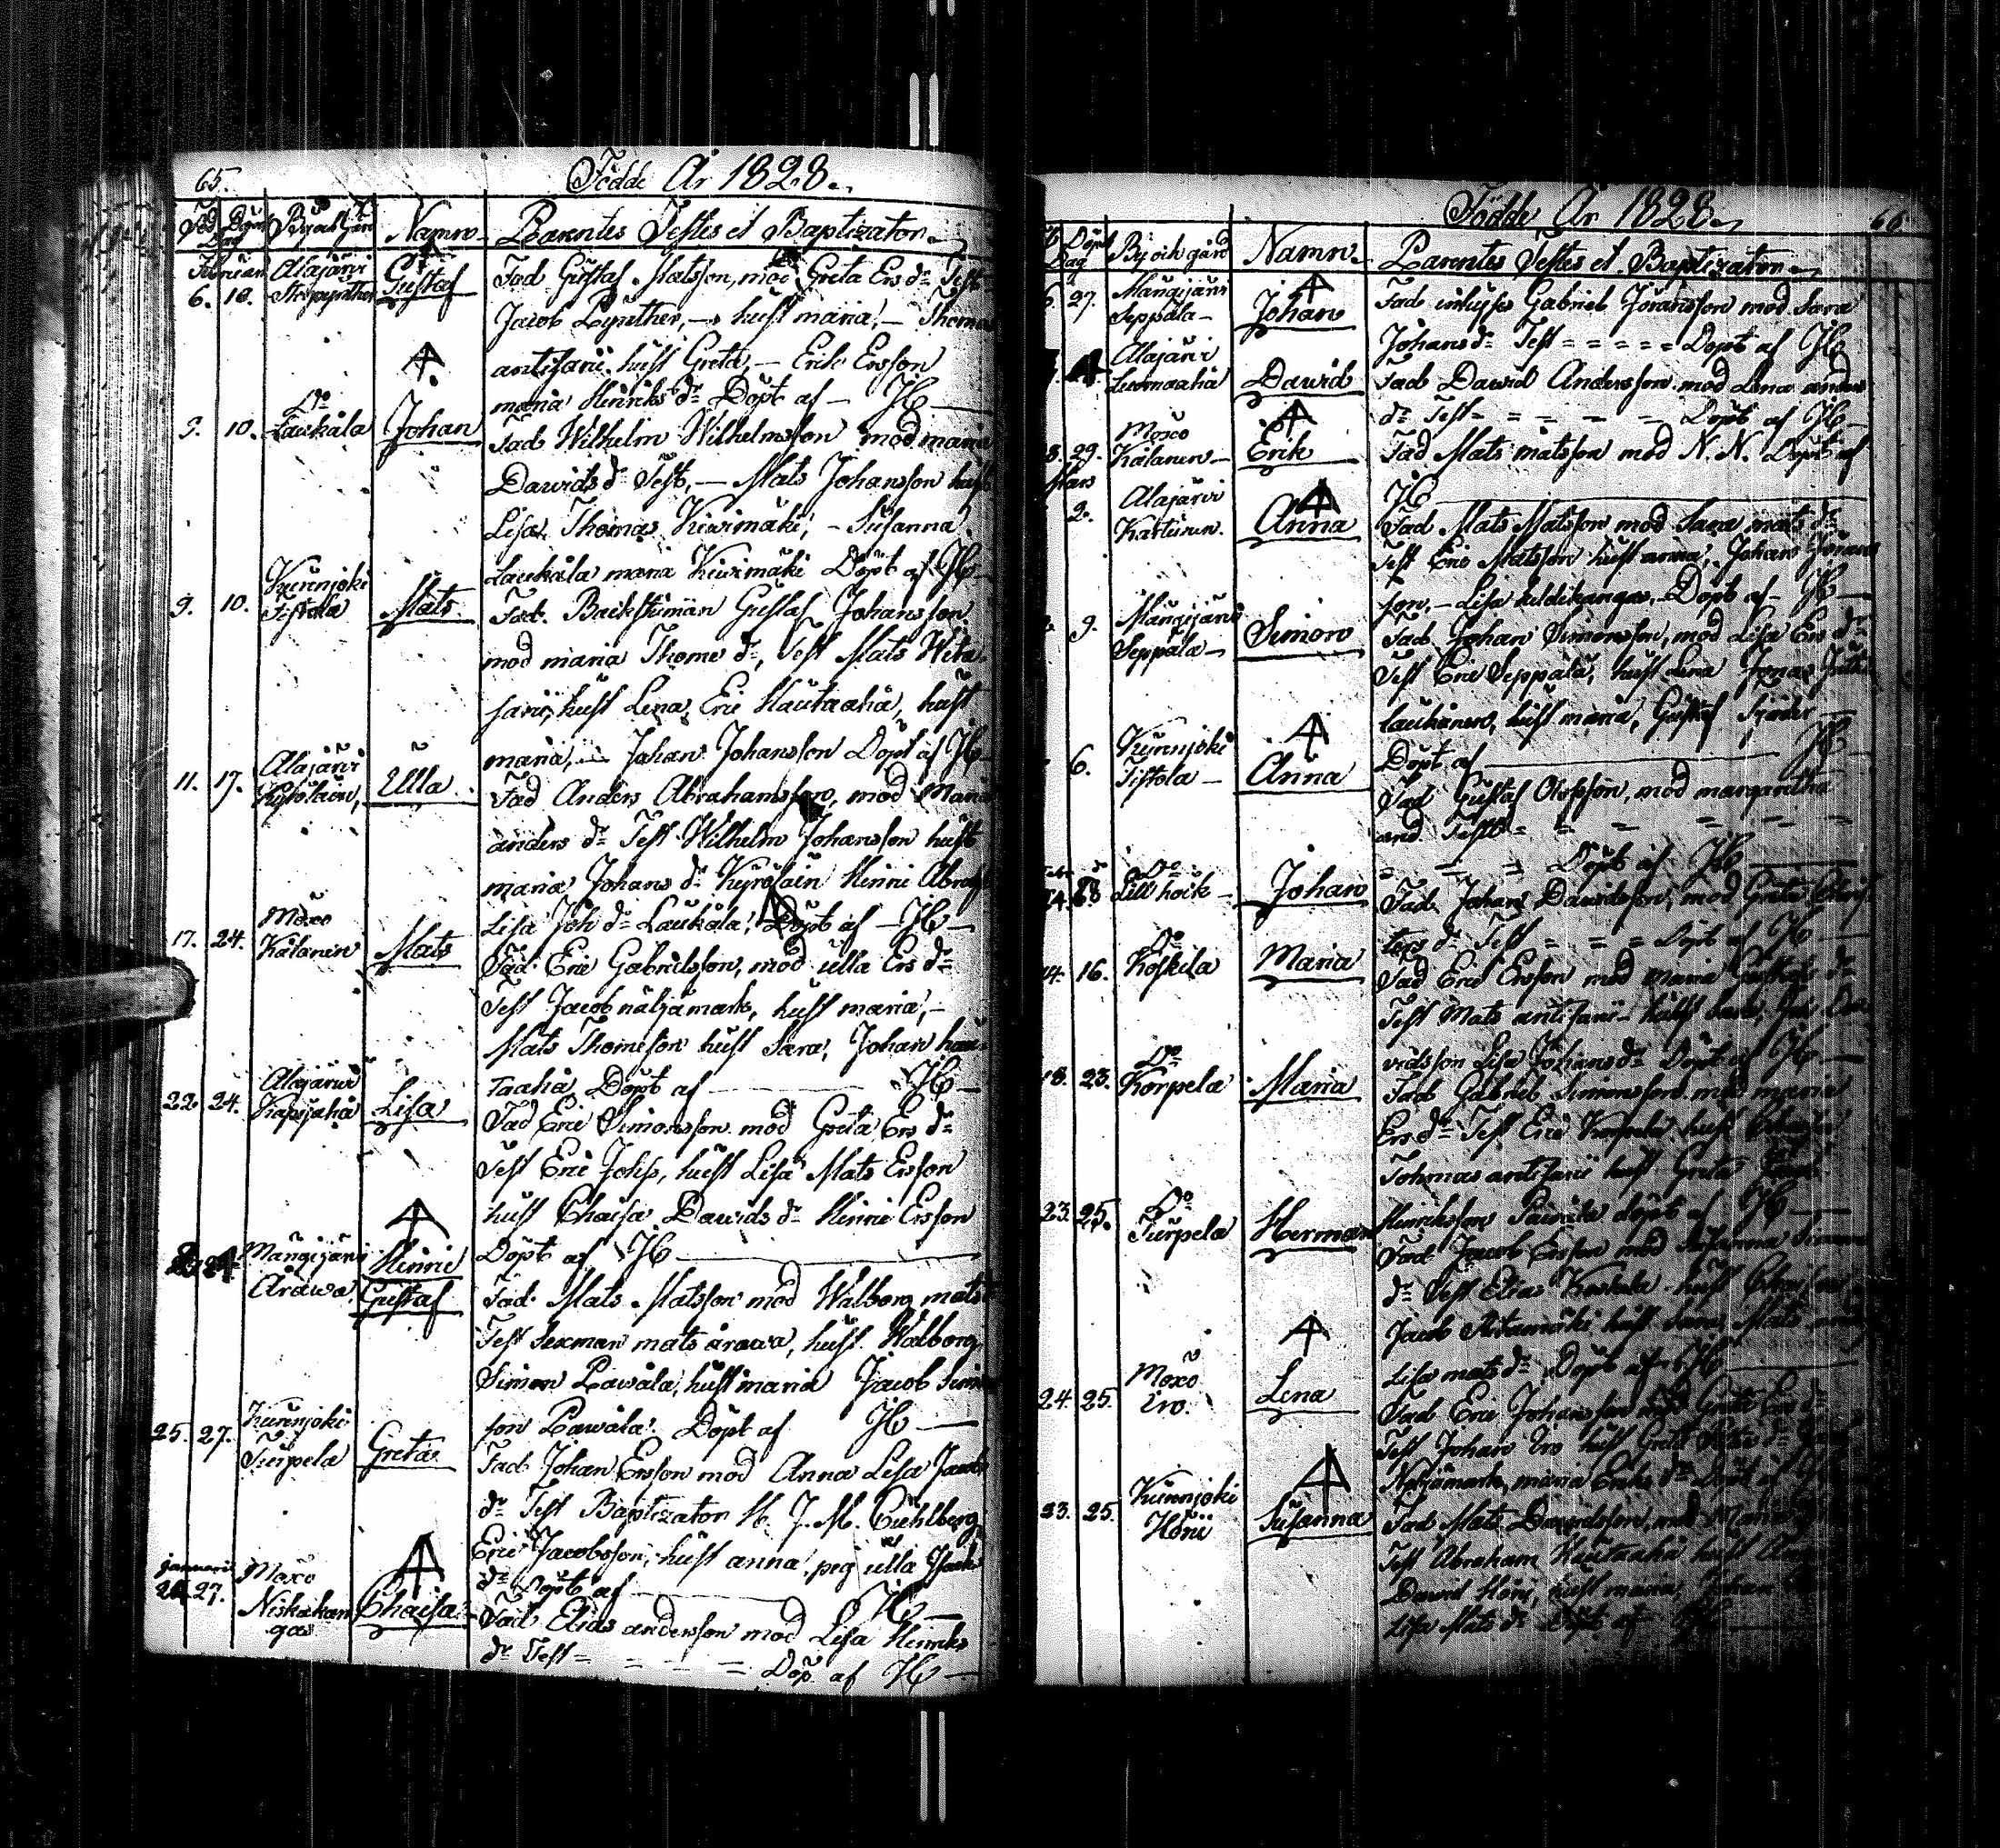 65.
Födde År 1828.
Född Döpt Dag
By och Gård
Namn
Parentes Testes et Baptizator
Februari
6. 10.
Alajärvi
Gustaf
Fad Gustaf Matsson, mod Greta Ers dr Test
Jacob Rynther, — hust maria, — Thomas
antisarii, hust Greta, — Erik Ersson
maria Hinriks dr Döpt af — JH —
9. 10.
Do
Laukala
Johan
Fad Wilhelm Wilhelmsson mod maria
Davids dr Test, — Mats Johansson hust
Lisa, Thomas Kiwimäki, — Susanna
Laukala maria Kiwimäki Döpt af JH
9. 10.
Kurenjoki
Tistola
Mats
Fad. Backstuman Gustaf Johansson
mod maria Thome dr, Test Mats Wita
sarii, hust Lena, Eric Hautaaha, hust
maria, — Johan Johansson Döpt af JH
11. 17.
Alajärvi
Kyrölain,
Ulla
Fad Anders Abrahamsson, mod Maria
anders dr Test Wilhelm Johansson hust
maria Johans dr Kyrölain Hinric Abrah
Lisa Joh dr Laukala, Döpt af — JH —
17. 24.
Moxo
Kalanen
Mats
Fad. Eric Gabrielsson, mod ulla Ers dr
Test Jacob näljämark, hust maria, —
Mats Thomesson hust Sara, Johan hau
taaha, Döpt af — JH —
22. 24.
Alajärvi
Kapsjaha
Lisa
Fad Eric Simonsson mod Greta Ers dr
Test Eric Johss, hust Lisa Mats Ersson
hust Chaisa Davids dr Hinric Ersson
Döpt af JH —
Mängijärvi
Arawa
Hinric
Gustaf
Fad. Mats Matsson mod Walborg mats
Test Sexman mats arawa, hust. Walborg
Simon Pawala, hust maria Jacob Simon
son Pawala. Döpt af JH —
25. 27.
Kurenjoki
Turpela
Greta
Fad Johan Ersson mod Anna Lisa Jacobs
dr Test Baptizator H. J. M. Cuhlberg
Eric Jacobsson, hust anna, pig ulla
dr Döpt af — JH —
januari
27.
Moxo
Niskakan
gas
Chaisa
Fad Elias andersson mod Lisa Hinriks
dr Test = = = = Döp. af JH —
Födde År 1828.
66.
Döpt
Dag
By och gård
Namn
Parentes Testes et Baptizator
27.
Mängijärvi
Seppälä —
Johan
Fad inhyses Gabriel Jöransson mod Sara
Johans dr Test = = = = = Döpt af JH
Alajärvi
Luomaaha
David
Fad David Andersson mod Lena anders
dr Test = = = = = Döpt af JH —
29.
Moxo
Kalanen —
Erik
Fad Mats matsson mod N. N. Döpt af
JH —
Mars
2.
Alajärvi
Kartunen.
Anna
Fad Mats Matsson mod Sara mats dr
Test Eric Matsson hust anna, Johan
son, — Lisa huldikangas, — Döpt af JH —
9.
Mängijärvi
Seppälä —
Simon
Fad Johan Simonsson, mod Lisa Ers dr
Test Eric Seppälä, hust Lena Jonas
Laukanen, hust maria, Gustaf
Döpt af — JH —
6.
Kurenjoki
Tistola —
Anna
Fad Gustaf Olofsson, mod margretha
and. Test = = = = = =
= = = Döpt af JH —
Do
Lillhoik —
Johan
Fad Johan Davidsson, mod Greta Chris
ters dr Test = = = Döpt af JH —
16.
Do
Koskila
Maria
Fad Eric Ersson mod Maria Gustafs dr
Test Mats antisarii — hust
vidsson Lisa Johans dr Döpt af JH —
23.
Do
Korpela
Maria
Fad Gabriel Simonsson mod maria
Ers dr Test Eric Korpela hust
Tohmas antisarii hust Greta
Hinriksson döpt af JH —
23. 25.
Do
Turpela
Herman
Fad Jacob Ersson mod Susanna
dr Test Elias hust
Jacob hust Sara, Mats
Lisa mats dr Döpt af JH —
24. 25.
Moxo
Iro.
Lena
Fad Eric Johansson mod Greta Ers dr
Test Johan Iro hust Greta
maria Eriks dr Döpt af
23. 25.
Kurenjoki
Höni
Susanna
Fad Mats Davidsson, mod Maria
Test Abraham Hautaaha hust
David Höni, hust maria, Johan
Lisa Mats dr Döpt af JH —